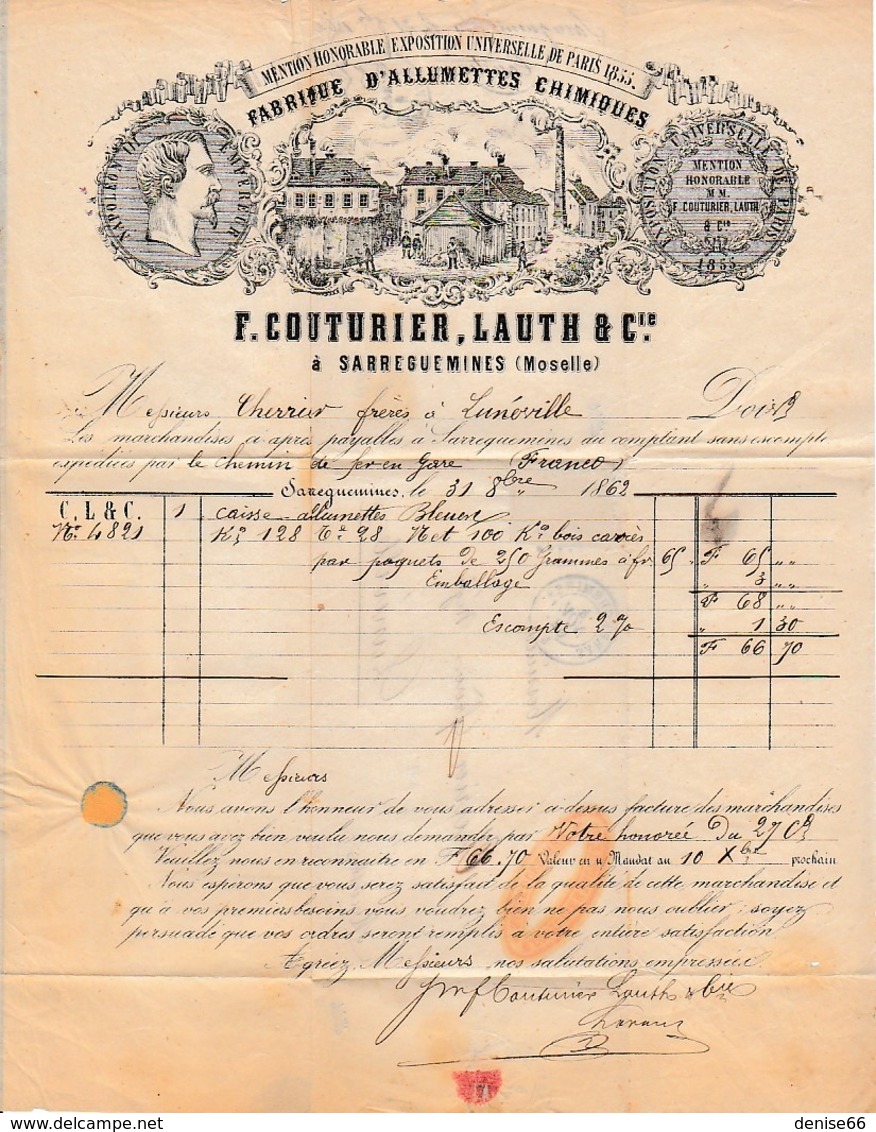 MENTION HONORABLE EXPOSITION UNIVERSELLE DE PARIS 1855.
FABRIQUE D'ALLUMETTES CHIMIQUES
NAPOLEON III EMPEREUR
EXPOSITION UNIVERSELLE DE PARIS
MENTION
HONORABLE
M M
F. COUTURIER, LAUTH
& Cie
1855
F. COUTURIER, LAUTH & Cie.
à SARREGUEMINES (Moselle)
Messieurs Cherrier frères à Lunéville Doivt
Les marchandises ci après payables à Sarreguemines au comptant sans escompte
expédiées par le chemin de fer en Gare (Franco)
Sarreguemines, le 31 8bre 1862
C. L & C. 1 caisse allumettes
No 4821 Ko 128 Te 28 Net 100 Ko bois carrés
par paquets de 250 grammes à fr 65 " F 65 ""
Emballage " 3 ""
F 68 ""
Escompte 2 % " 1 30
F 66 70
Messieurs
Nous avons l'honneur de vous adresser ci-dessus facture des marchandises
que vous avez bien voulu nous demander par Votre honorée du 27 Ct
Veuillez nous en reconnaitre en F 66.70 Valeur en n/ Mandat au 10 Xbre prochain
Nous espérons que vous serez satisfait de la qualité de cette marchandise et
qu'à vos premiers besoins vous voudrez bien ne pas nous oublier; soyez
persuadé que vos ordres seront remplis à votre entière satisfaction
Agréez, Messieurs nos salutations empressées.
Couturier Lauth & Cie
denise66